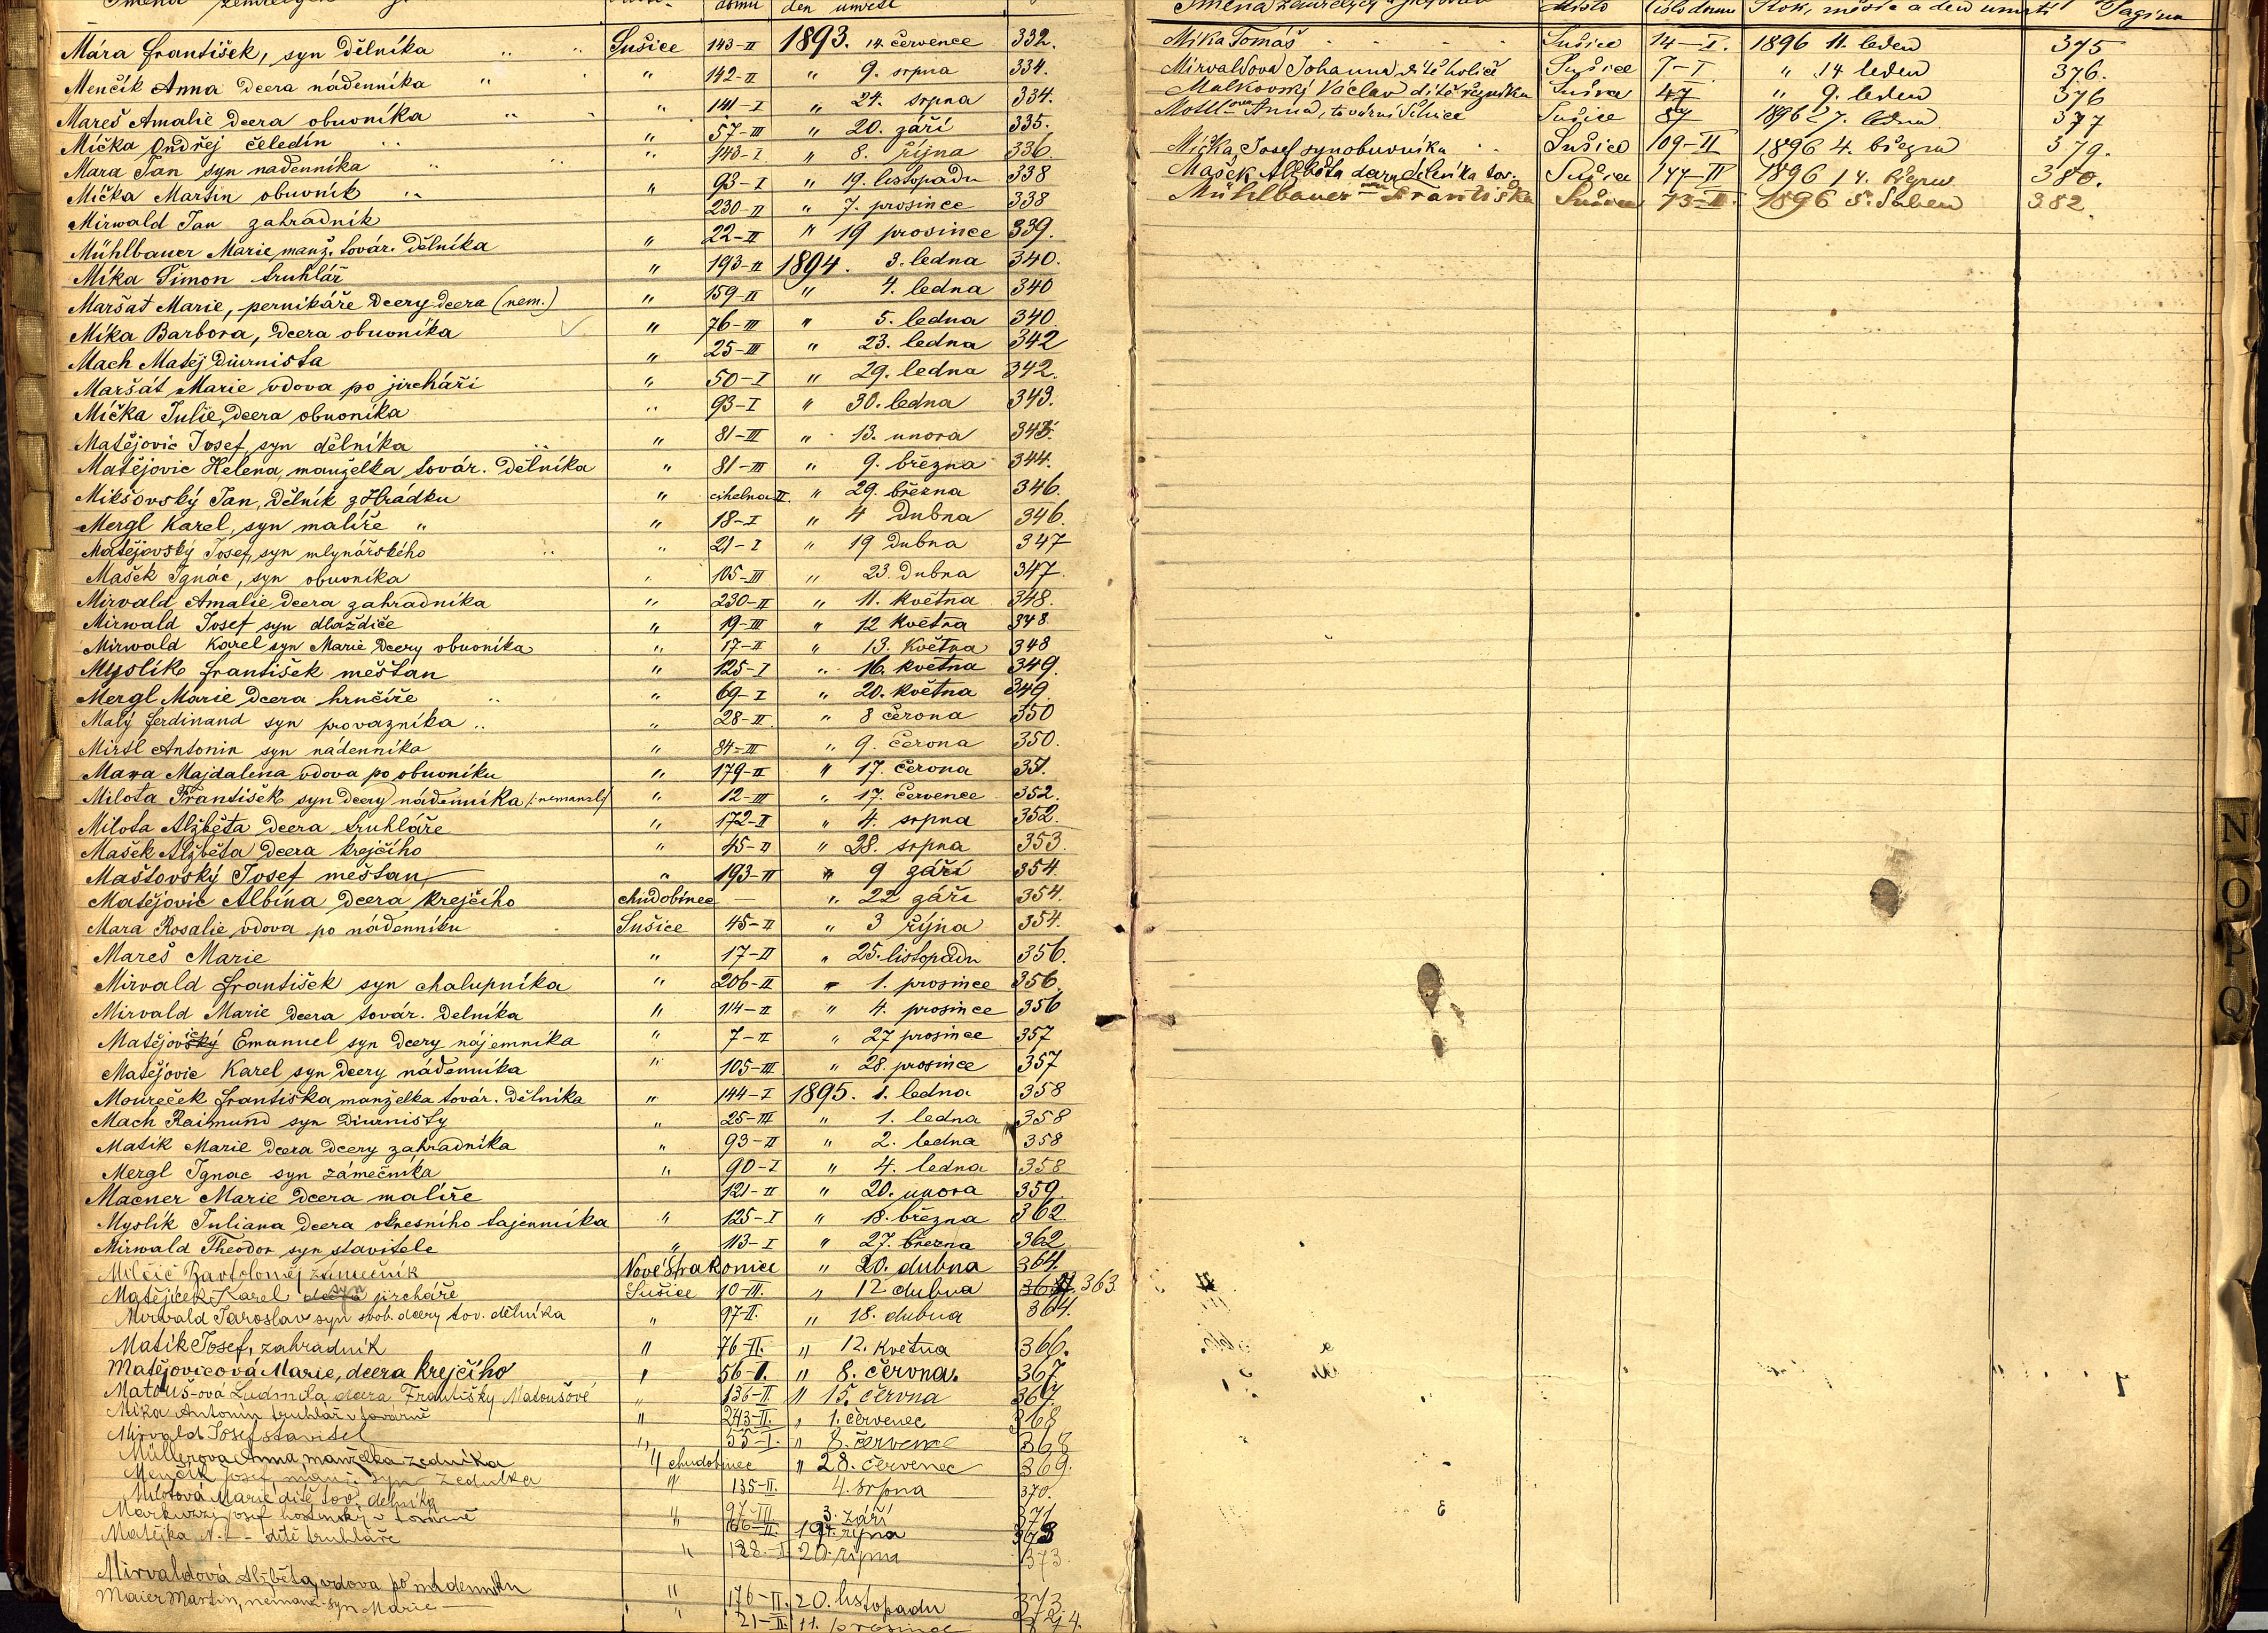 den úmrtí
Mára František, syn dělníka " " Sušice 143-II 1893. 14. července 332.
Menčík Anna dcera nádenníka " " " 142-II " 9. srpna 334.
Mareš Amalie dcera obuvníka " " " 141-I " 24. srpna 334.
Mička Ondřej čeledín " " 57-III " 20. září 335.
Mara Jan syn nádenníka " " " 143-I " 8. října 336
Mička Martin obuvník " " 93-I " 19. listopadu 338
Mirwald Jan zahradník 230-II " 7. prosince 338
Mühlbauer Marie, manž. továr. dělníka " 22-II " 19 prosince 339.
Míka Šimon truhlář " 193-II 1894. 3. ledna 340.
Maršat Marie, pernikáře dcery dcera (nem.) " 159-II " 4. ledna 340
Míka Barbora, dcera obuvníka " 76-III " 5. ledna 340
Mach Matěj Diurnista " 25-III " 23. ledna 342
Maršát Marie vdova po jircháři " 50-I " 29. ledna 342.
Mička Julie, dcera obuvníka " 93-I " 30. ledna 343.
Matějovic Josef, syn dělníka " " 81-III " 13. unora 343.
Matějovic Helena, manželka továr. dělníka " 81-III " 9. března 344.
Mikšovský Jan, dělník z Hrádku " cihelna II. " 29. března 346.
Mergl Karel, syn malíře " " 18-I " 4 dubna 346.
Matějovský Josef, syn mlynářského " " 21-I " 19 dubna 347
Mašek Ignác, syn obuvníka " 105-III " 23. dubna 347.
Mirvald Amalie dcera zahradníka " 230-II " 11. května 348.
Mirwald Josef syn dlaždiče " 19-III " 12 května 348
Mirwald Karel syn Marie dcery obuvníka " 17-II " 13. května 348
Myslík František měšťan " 125-I " 16. května 349.
Mergl Marie dcera hrnčíře " " 69-I " 20. května 349
Malý Ferdinand syn provazníka " " 28-II " 8 června 350
Mirtl Antonin syn nádenníka " 84-III " 9. června 350.
Mara Majdalena vdova po obuvníku " 179-II " 17. června 351.
Milota František syn dcery nádenníka /: nemanželský " 12-III " 17. července 352.
Milota Alžběta dcera truhláře " 172-II " 4. srpna 352.
Mašek Alžběta dcera krejčího " 45-II " 28. srpna 353.
Maštovský Josef měšťan " 193-III " 9 září 354.
Matějovic Albína dcera krejčího chudobinec — " 22 září 354.
Mara Rosalie vdova po nádenníku Sušice 45-II " 3 října 354.
Mareš Marie " 17-II " 25. listopadu 356.
Mirvald František syn chalupníka " 206-II " 1. prosince 356.
Mirvald Marie dcera továr. dělníka " 114-II " 4. prosince 356
Matějovský Emanuel syn dcery nájemníka " 7-II " 27 prosince 357
Matějovic Karel syn dcery nádenníka " 105-III " 28. prosince 357
Moureček Františka manželka továr. dělníka " 144-I 1895. 1. ledna 358
Mach Raimund syn Diurnisty " 25-III " 1. ledna 358
Matik Marie dcera dcery zahradníka " 93-II " 2. ledna 358
Mergl Ignac syn zámečníka " 90-I " 4. ledna 358
Macner Marie dcera malíře 121-II " 20. unora 359.
Myslík Juliana dcera okresního tajemníka " 125-I " 18. března 362.
Mirwald Theodor syn stavitele " 113-I " 27. března 362.
Milčič Bartoloměj zámečník Nové Strakonice " 20. dubna 364.
Matějíček Karel syn jircháře Sušice 10-III. " 12 dubna 363
Mirvald Jaroslav syn svob. dcery tov. dělníka " 97-II. " 18. dubna 364.
Matik Josef, zahradník " 76-II. " 12. května 366.
Matějovicová Marie, dcera krejčího " 56-I. " 8. června. 367
Matouš-ová Ludmila dcera Františky Matoušové " 136-II. " 15. června 367.
Míka Antonín truhlář v továrně " 243-II. " 1. červenec 368
Mirvald Josef stavitel " 55-I. " 8. července 368
Müllerova Anna, manželka zedníka " chudobinec " 28. červenec 369.
Menčík Josef manž. syn zedníka " 135-II. 4. srpna 370.
Milotová Marie dítě tov. dělníka 97-III 3. září 371
Markuzzi Josef hostinský v továrně " 166-II. 19. října 373
Matějka N. - dítě truhláře " 188.-I 20. října 373.
Mirvaldová Alžběta, vdova po nádenníku " 176-II. 20. listopadu 373.
Maier Martin, nemanž. syn Marie — " 21-II. 11. prosince 374.
Jména zemřelých Místo Číslo domu Rok, měsíc a den úmrtí Pagina
Míka Tomáš Sušice 14-I. 1896 11. leden 375
Mirvaldova Johanna dítě holiče Sušice 7-I " 14 leden 376.
Malkovský Václav dítě řezníka Sušice 47 " 9. leden 376
Mottl ova Anna, tovární dělnice Sušice 87 1896 27. ledna 377
Mička Josef syn obuvníka Sušice 109-II 1896 4. března 379.
Mašek Alžběta dcera dělníka tov. Sušice 177-II 1896 14. března 380.
Mühlbauer ova Františka Sušice 73-II. 1896 5. duben 382.
N
O
P
Q